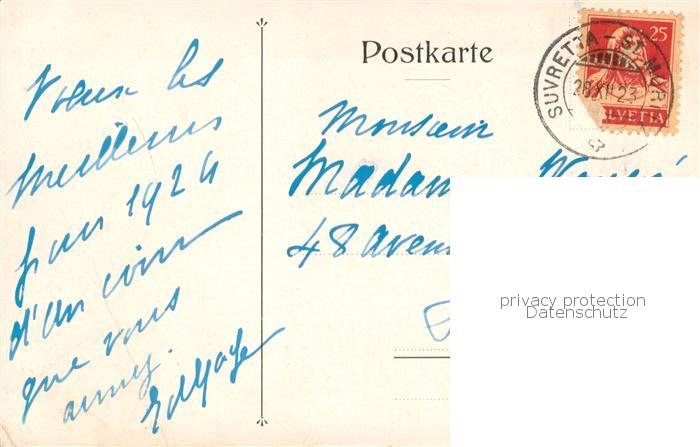 Postkarte
25
SUVRETTA - ST. MOR
28.XII.23
HELVETIA
Voeux les
meilleurs
pour 1924
d'un coin
que vous
aimez.
Monsieur
Madam
48 aven
privacy protection
Datenschutz